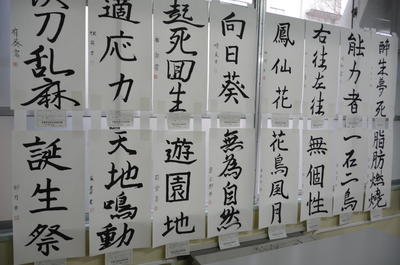 酔生夢死
能力者
右往左往
鳳仙花
向日葵
起死回生
適応力
快刀乱麻
脂肪燃焼
一石二鳥
無個性
花鳥風月
無為自然
遊園地
天地鳴動
誕生祭